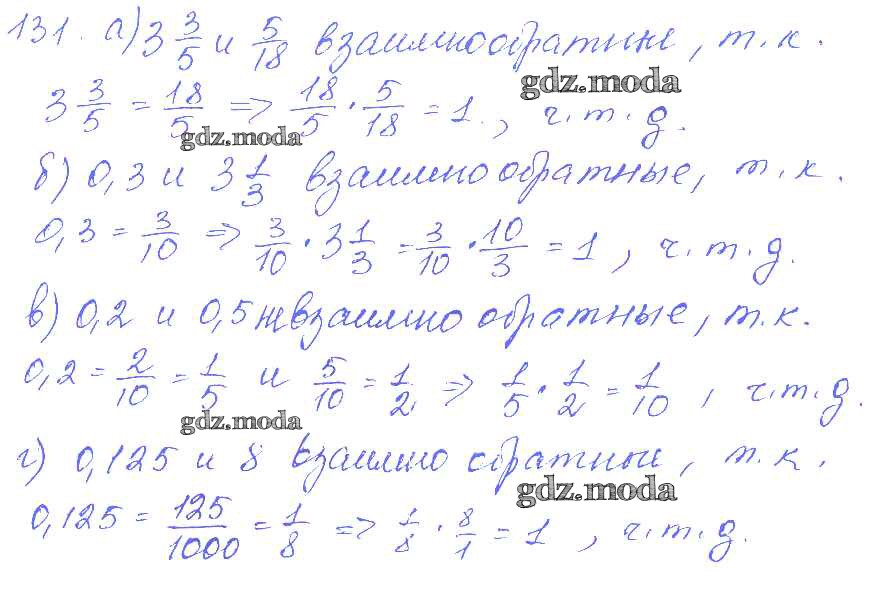 131. а) 3 3/5 и 5/18 взаимнообратные, т.к.
gdz.moda
3 3/5 = 18/5 => 18/5 · 5/18 = 1., ч.т.д.
gdz.moda
б) 0,3 и 3 1/3 взаимно обратные, т.к.
0,3 = 3/10 => 3/10 · 3 1/3 = 3/10 · 10/3 = 1, ч.т.д.
в) 0,2 и 0,5 не взаимно обратные, т.к.
0,2 = 2/10 = 1/5 и 5/10 = 1/2 => 1/5 · 1/2 = 1/10, ч.т.д.
gdz.moda
г) 0,125 и 8 взаимно обратные, т.к.
gdz.moda
0,125 = 125/1000 = 1/8 => 1/8 · 8/1 = 1, ч.т.д.